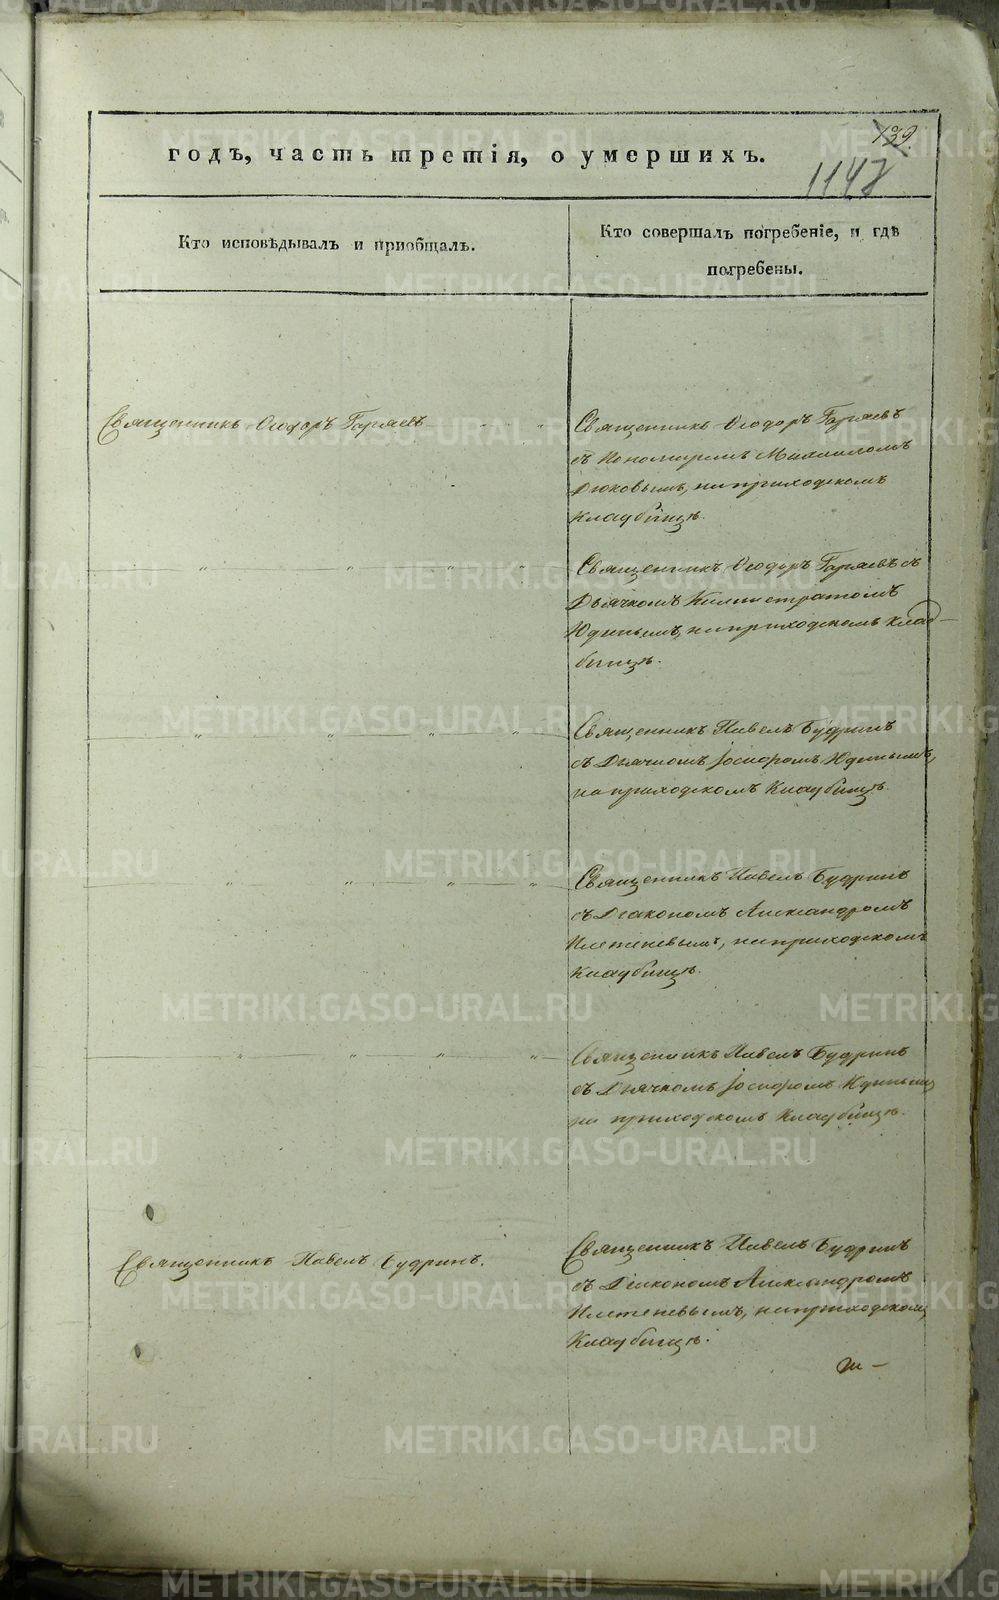 139.
годъ, часть третія, о умершихъ.
1147
Кто исповѣдывалъ и приобщалъ.
Кто совершалъ погребеніе, и гдѣ
погребены.
Священникъ Ѳеодоръ Гаряевъ
Священникъ Ѳеодоръ Гаряевъ
съ Пономаремъ Михаиломъ
Дюковымъ, на приходскомъ
кладбищѣ.
Священникъ Ѳеодоръ Гаряевъ съ
Дьячкомъ Каллистратомъ
Юдинымъ, на приходскомъ клад-
бищѣ.
Священникъ Павелъ Будринъ
съ Дьячкомъ Іосифомъ Юдинымъ,
на приходскомъ Кладбищѣ.
Священникъ Павелъ Будринъ
съ Діакономъ Александромъ
Плетеневымъ, на приходскомъ
Кладбищѣ.
Священникъ Павелъ Будринъ
съ Дьячкомъ Іосифомъ Юдинымъ
на приходскомъ Кладбищѣ.
Священникъ Павелъ Будринъ.
Священникъ Павелъ Будринъ
съ Діакономъ Александромъ
Плетеневымъ, на приходскомъ
Кладбищѣ.
METRIKI.GASO-URAL.RU